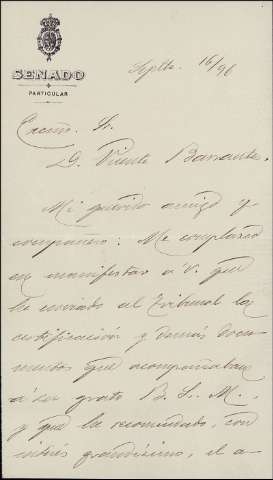 SENADO
PARTICULAR
Septe. 16/96
Excmo. Sr.
D. Vicente Barrantes.
Mi querido amigo y
compañero: Me complazco
en manifestar á V. que
he enviado al Tribunal la
certificación y demás docu-
mentos que acompañaban
á su grato B. L. M.,
y que he recomendado, con
interés grandísimo, el a-